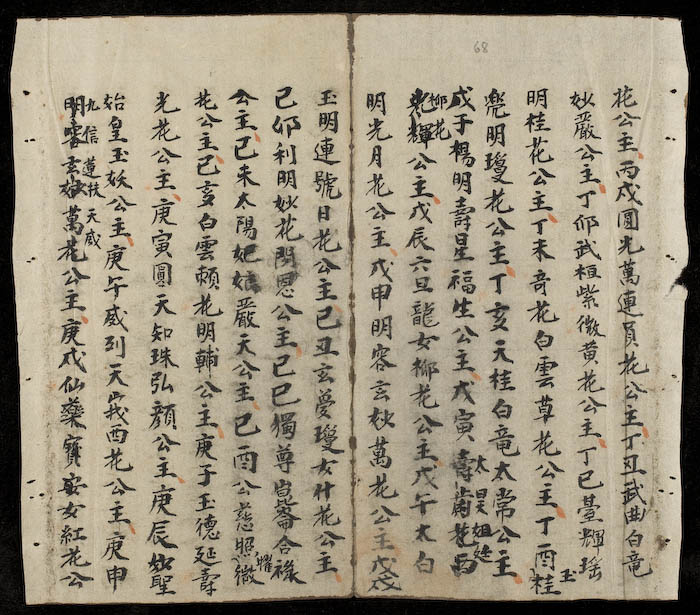 68
花公主丙戌圓光萬連員花公主丁丑武曲白竜
妙嚴公主丁卯武桓紫微黃花公主丁巳臺輝瑶
明桂花公主丁未竒花白雲草花公主丁酉桂玉
兠明瓊花公主丁亥天桂白竜太常公主
戊子楊明壽星福生公主戊寅壽嵗花西太昊姐娃
柳花輝公主戊辰六旦龍女柳花公主戊午太白
明光月花公主戊申明容玄妙萬花公主戊戌
玉明連號日花公主己丑玄夢瓊女什花公主
己卯利明妙花開恩公主己巳獨尊崑崙合祿
公主己未太陽妃娘嚴天公主己酉公慈照微耀
花公主己亥白雲頼花明輔公主庚子玉德延壽
光花公主庚寅圓天知珠弘顏公主庚辰如聖
始皇玉妖公主庚午威列天峩西花公主庚申
九信蓮技天威
明容玄妙萬花公主庚戌仙藥寳安女紅花公